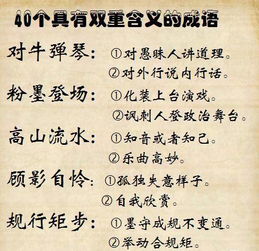 40个具有双重含义的成语
对牛弹琴：①对愚昧人讲道理。
②对外行说内行话。
粉墨登场：①化装上台演戏。
②讽刺人登政治舞台。
高山流水：①知音或者知己。
②乐曲高妙。
顾影自怜：①孤独失意样子。
②自我欣赏。
规行矩步：①墨守成规不变通。
②举动合规矩。